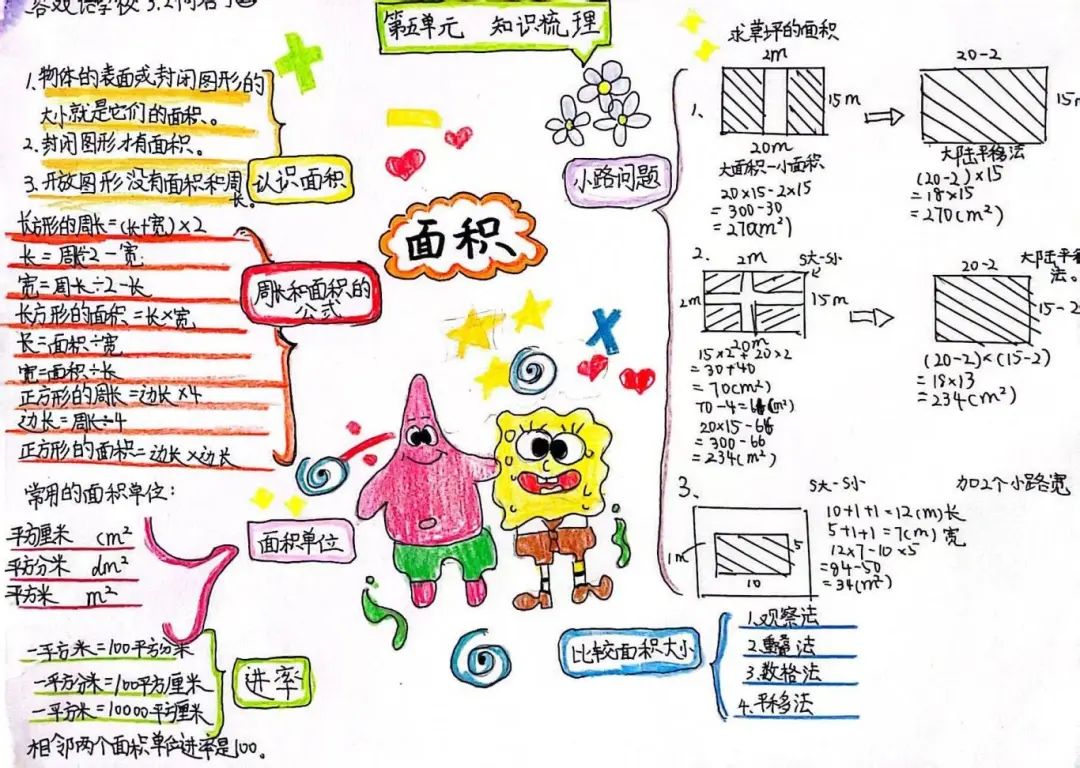 第五单元 知识梳理
面积
1.物体的表面或封闭图形的
大小就是它们的面积。
2.封闭图形才有面积。
3.开放图形没有面积和周
长。
认识面积
长方形的周长=(长+宽)×2
长=周长÷2-宽
宽=周长÷2-长
长方形的面积=长×宽
长=面积÷宽
宽=面积÷长
正方形的周长=边长×4
边长=周长÷4
正方形的面积=边长×边长
周长和面积的
公式
常用的面积单位:
平方厘米 cm²
平方分米 dm²
平方米 m²
面积单位
一平方米=100平方分米
一平方分米=100平方厘米
一平方米=10000平方厘米
相邻两个面积单位进率是100。
进率
小路问题
求草坪的面积
1、
2m
15m
20m
大面积-小面积
20×15-2×15
=300-30
=270(m²)
20-2
15m
大陆平移法
(20-2)×15
=18×15
=270(m²)
2.
2m
S大-S小
2m
15m
20m
15×2+20×2
=30+40
=70(m²)
70-4=66(m²)
20×15-66
=300-66
=234(m²)
20-2
大陆平移
法。
15-2
(20-2)×(15-2)
=18×13
=234(m²)
3、
S大-S小
加2个小路宽
1m
5
10
10+1+1=12(m)长
5+1+1=7(m)宽
12×7-10×5
=84-50
=34(m²)
比较面积大小
1.观察法
2.重叠法
3.数格法
4.平移法